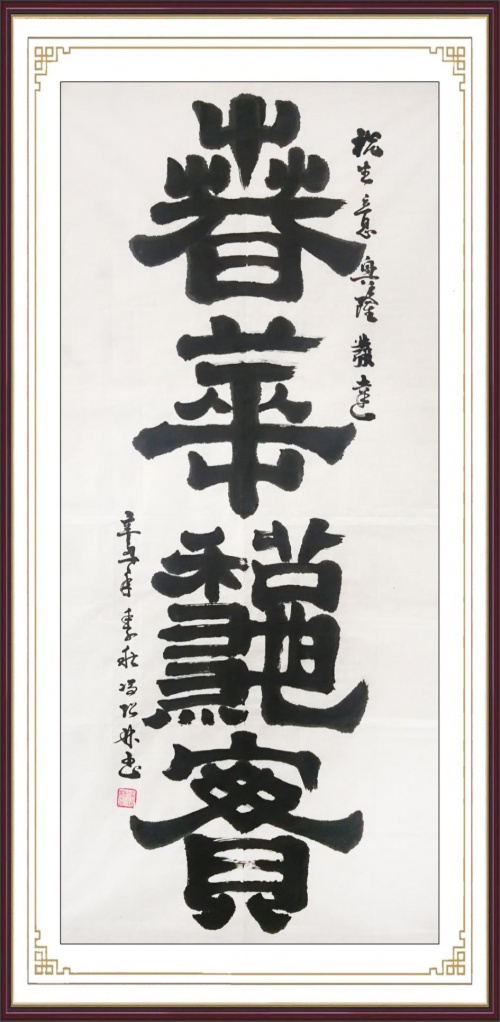 祝生意興隆發達
春華龝實
辛丑年季秋冯书